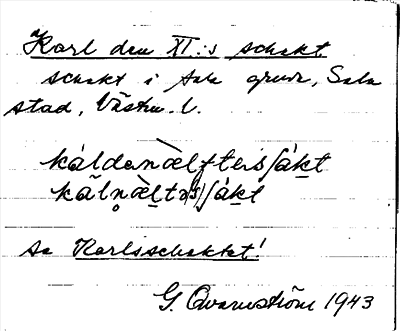 Karl den XI:s schakt
schakt i Sala gruva, Sala
stad, Västm. l.
káldenælftes∫ákt
kãlnæ̀ltəs∫ákt
se Karlsschaktet!
G. Qvarnström 1943